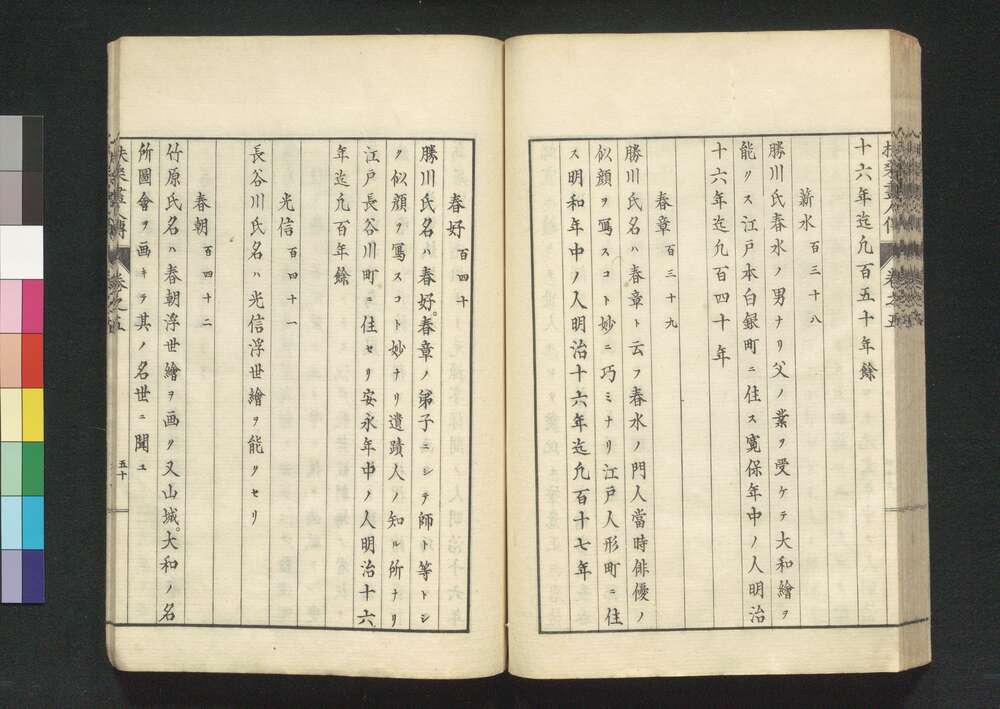 十六年迄凢百五十年餘
薪水 百三十八
勝川氏春水ノ男ナリ父ノ業ヲ受ケテ大和繪ヲ
能クス江戸本白銀町ニ住ス寛保年中ノ人明治
十六年迄凢百四十年
春章 百三十九
勝川氏名ハ春章ト云フ春水ノ門人當時俳優ノ
似顔ヲ寫スコト妙ニ巧ミナリ江戸人形町ニ住
ス明和年中ノ人明治十六年迄凢百十七年
春好 百四十
勝川氏名ハ春好。春章ノ弟子ニシテ師ト等トシ
ク似顔ヲ寫スコト妙ナリ遺蹟人ノ知ル所ナリ
江戸長谷川町ニ住セリ安永年中ノ人明治十六
年迄凢百年餘
光信 百四十一
長谷川氏名ハ光信浮世繪ヲ能クセリ
春朝 百四十二
竹原氏名ハ春朝浮世繪ヲ画ク又山城。大和ノ名
所圖會ヲ画キテ其ノ名世ニ聞ユ
卷之五
五十